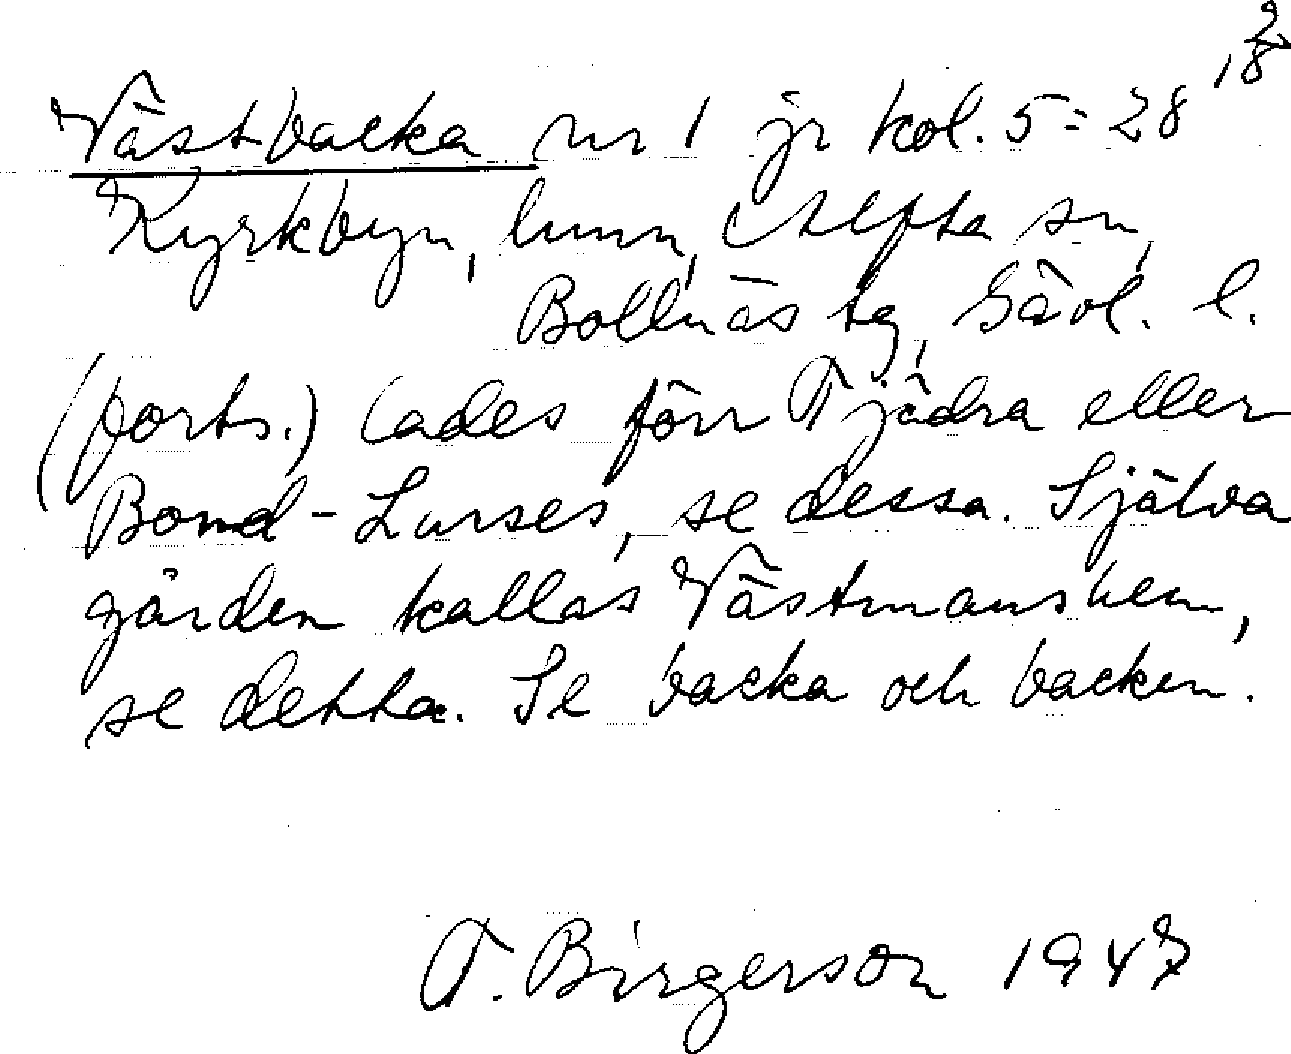 2
18
Västbacka nr 1 jr kol. 5 = 28
Kyrkbyn, Alfta sn,
Bollnäs tg, Gävl. l.
(forts.) Cades förr Tjädra eller
Bond-Lurses, se dessa. Själva
gården kallas Västmanshem,
se detta. Se backa och backen.
T. Birgerson 1947